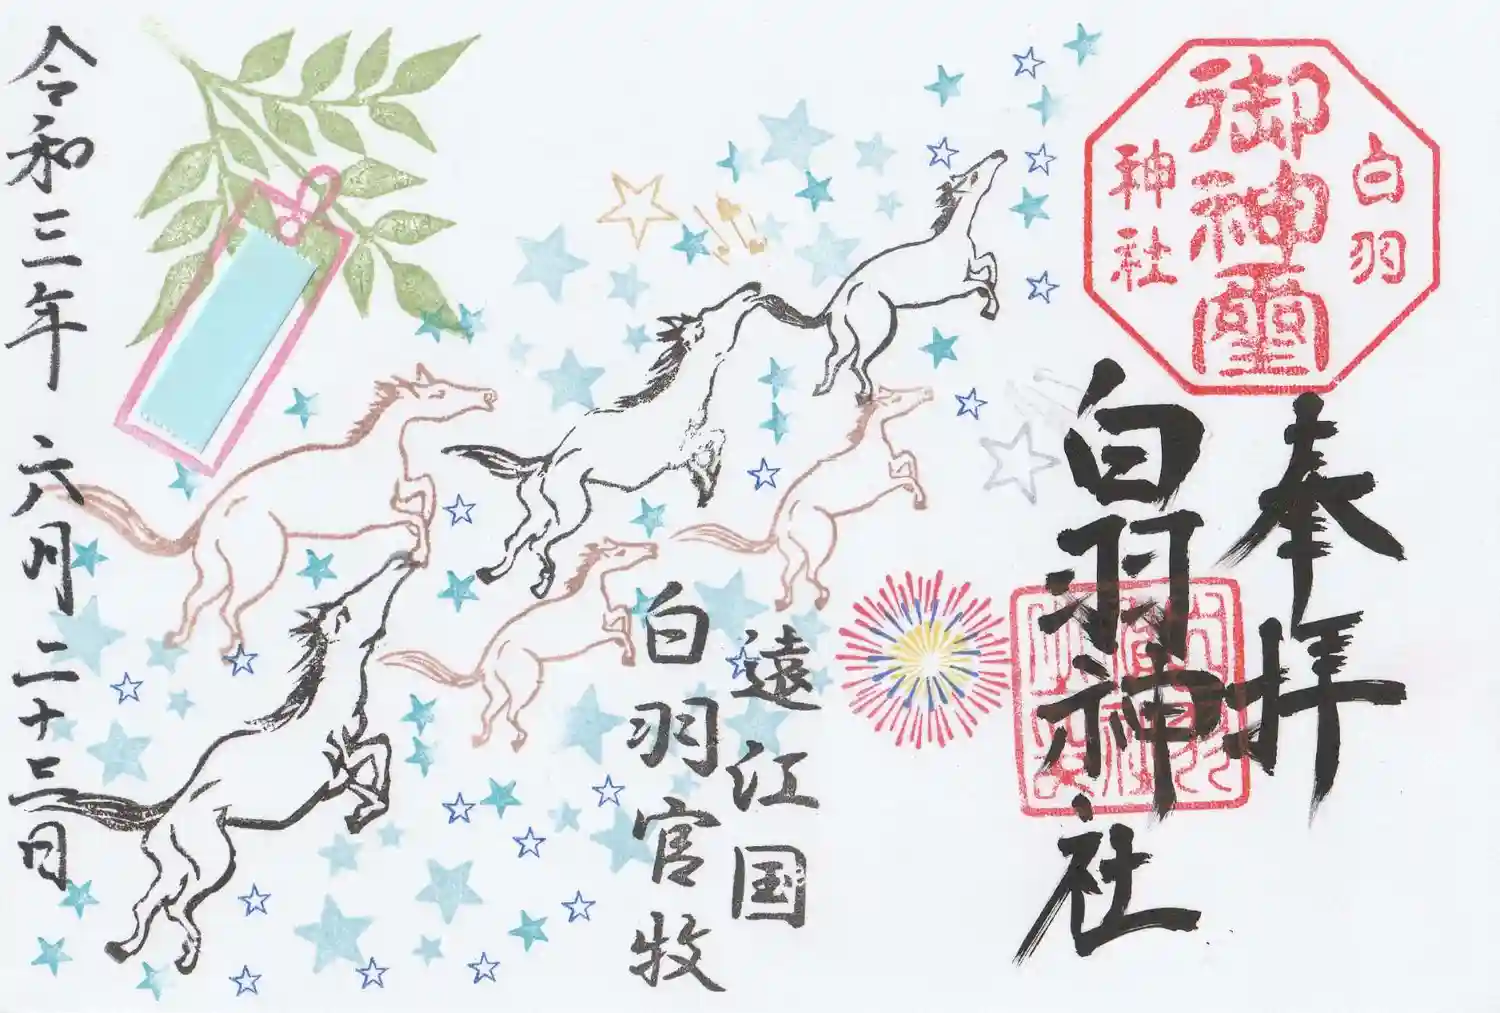 白羽
御神霊
神社
奉拝
白羽神社
遠江国
白羽官牧
令和三年 六月 二十三日